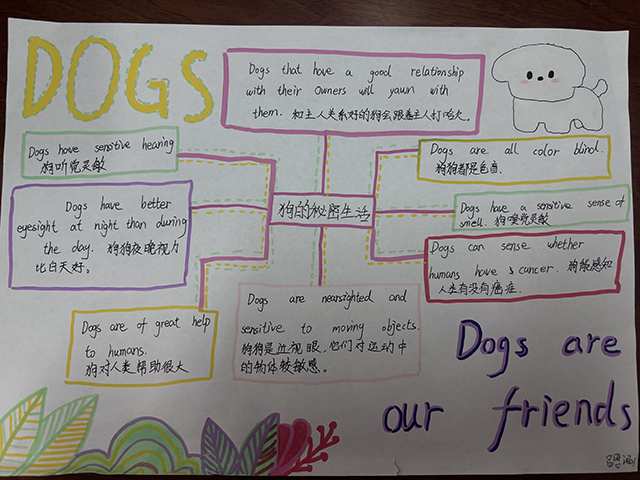 DOGS
Dogs that have a good relationship
with their owners will yawn with
them. 和主人关系好的狗会跟着主人打哈欠。
Dogs have sensitive hearing
狗听觉灵敏
Dogs are all color blind.
狗狗都是色盲.
Dogs have better
eyesight at night than during
the day. 狗狗夜晚视力
比白天好。
狗的秘密生活
Dogs have a sensitive sense of
smell. 狗嗅觉灵敏
Dogs can sense whether
humans have cancer. 狗能感知
人类有没有癌症.
Dogs are nearsighted and
sensitive to moving objects.
狗狗是近视眼,它们对运动中
的物体较敏感。
Dogs are of great help
to humans.
狗对人类帮助很大
Dogs are
our friends